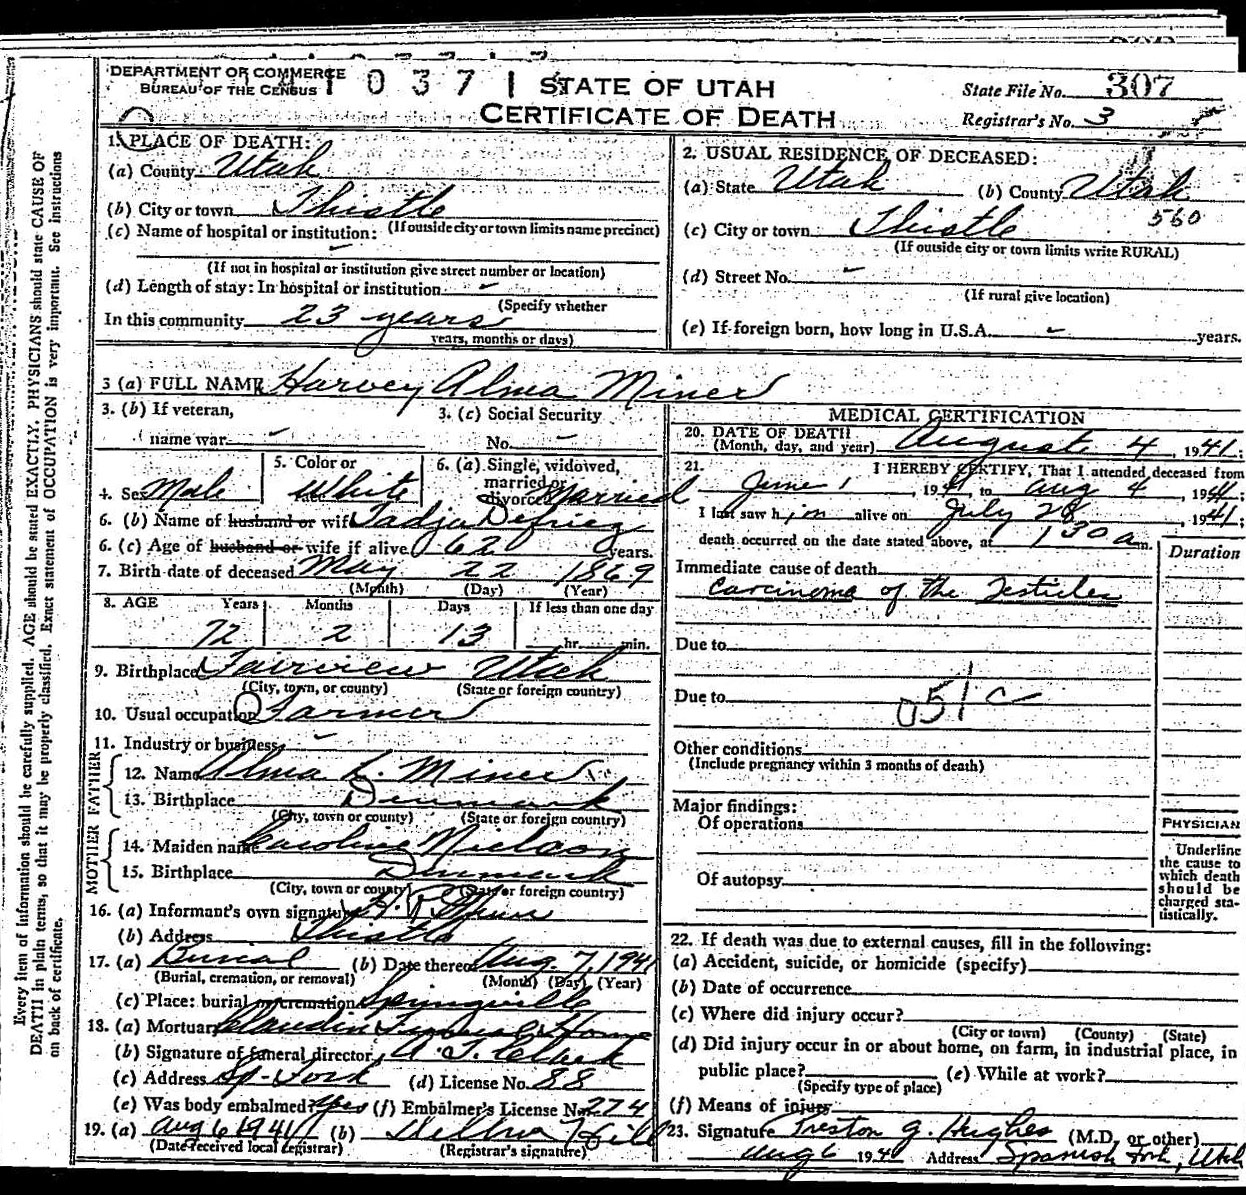 DEPARTMENT OF COMMERCE
BUREAU OF THE CENSUS
1 0 3 7 1
STATE OF UTAH
CERTIFICATE OF DEATH
State File No. 307
Registrar's No. 3
1. PLACE OF DEATH:
(a) County Utah
(b) City or town Thistle
(If outside city or town limits name precinct)
(c) Name of hospital or institution:
(If not in hospital or institution give street number or location)
(d) Length of stay: In hospital or institution
(Specify whether
In this community 23 years
years, months or days)
2. USUAL RESIDENCE OF DECEASED:
(a) State Utah (b) County Utah
560
(c) City or town Thistle
(If outside city or town limits write RURAL)
(d) Street No.
(If rural give location)
(e) If foreign born, how long in U.S.A. years.
3 (a) FULL NAME Harvey Alma Miner
3. (b) If veteran,
name war
3. (c) Social Security
No.
4. Sex Male
5. Color or
race White
6. (a) Single, widowed,
married or
divorced Married
6. (b) Name of husband or wife Tadja Defriez
6. (c) Age of husband or wife if alive 62 years.
7. Birth date of deceased May 22 1869
(Month) (Day) (Year)
8. AGE Years Months Days If less than one day
72 2 13 hr. min.
9. Birthplace Fairview Utah
(City, town, or county) (State or foreign country)
10. Usual occupation Farmer
11. Industry or business
FATHER
12. Name Alma L. Miner
13. Birthplace Denmark
(City, town or county) (State or foreign country)
MOTHER
14. Maiden name Caroline Nielson
15. Birthplace Denmark
(City, town or county) (State or foreign country)
16. (a) Informant's own signature
(b) Address Thistle
17. (a) Burial (b) Date thereof Aug. 7, 1941
(Burial, cremation, or removal) (Month) (Day) (Year)
(c) Place: burial or cremation Springville
18. (a) Mortuary Claudin Funeral Home
(b) Signature of funeral director
(c) Address Sp. Fork (d) License No. 88
(e) Was body embalmed? yes (f) Embalmer's License No. 274
19. (a) Aug 6 1941 (b) Hill
(Date received local registrar) (Registrar's signature)
MEDICAL CERTIFICATION
20. DATE OF DEATH
(Month, day, and year) August 4, 1941;
21. I HEREBY CERTIFY, That I attended deceased from
June 1, 1941 to Aug 4, 1941;
I last saw him alive on July 28, 1941;
death occurred on the date stated above, at 1 30 a m.
Duration
Immediate cause of death
Carcinoma of the Testicles
Due to
Due to
051 c
Other conditions
(Include pregnancy within 3 months of death)
Major findings:
Of operations
Of autopsy
PHYSICIAN
Underline
the cause to
which death
should be
charged sta-
tistically.
22. If death was due to external causes, fill in the following:
(a) Accident, suicide, or homicide (specify)
(b) Date of occurrence
(c) Where did injury occur?
(City or town) (County) (State)
(d) Did injury occur in or about home, on farm, in industrial place, in
public place? (e) While at work?
(Specify type of place)
(f) Means of injury
23. Signature Preston G. Hughes (M.D. or other)
Aug 6 194 Address Spanish Fork, Utah
Every item of information should be carefully supplied. AGE should be stated EXACTLY. PHYSICIANS should state CAUSE OF
DEATH in plain terms, so that it may be properly classified. Exact statement of OCCUPATION is very important. See instructions
on back of certificate.